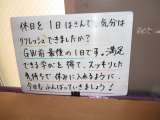 休日を1日はさんで気分は
リフレッシュできましたか？
GW前最後の1日です。満足
できる学びを得て、スッキリした
気持ちで休みに入れるように、
今日もがんばっていきましょう！